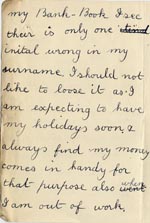 my Bank-Book I see
their is only one
inital wrong in my
surname. I should not
like to loose it as I
am expecting to have
my holidays soon, &
always find my money
comes in handy for
that purpose also when
I am out of work.